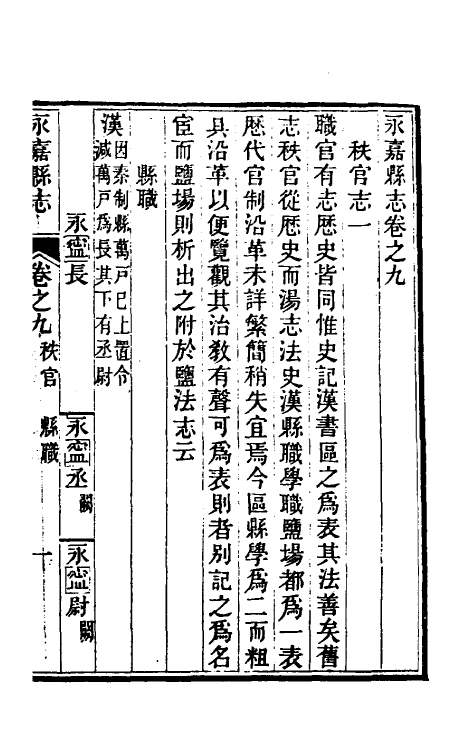 永嘉縣志卷之九
秩官志一
職官有志歷史皆同惟史記漢書區之爲表其法善矣舊
志秩官從歷史而湯志法史漢縣職學職鹽場都爲一表
歷代官制沿革未詳繁簡稍失宜焉今區縣學爲二而粗
具沿革以便覽觀其治敎有聲可爲表則者别記之爲名
宦而鹽場則析出之附於鹽法志云
縣職
漢因秦制縣萬戸已上置令
減萬戸爲長其下有丞尉
永寍長
永寍丞闕
永寍尉闕
永嘉縣志
卷之九秩官 縣職
一